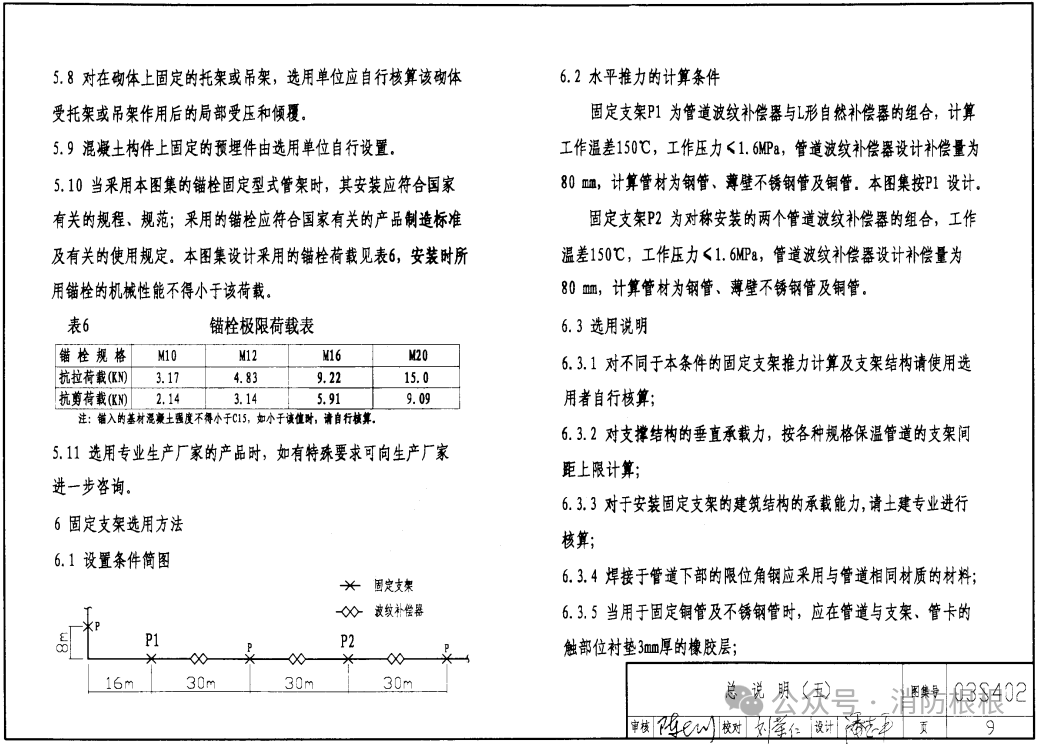 5.8 对在砌体上固定的托架或吊架，选用单位应自行核算该砌体
受托架或吊架作用后的局部受压和倾覆。
5.9 混凝土构件上固定的预埋件由选用单位自行设置。
5.10 当采用本图集的锚栓固定型式管架时，其安装应符合国家
有关的规程、规范；采用的锚栓应符合国家有关的产品制造标准
及有关的使用规定。本图集设计采用的锚栓荷载见表6，安装时所
用锚栓的机械性能不得小于该荷载。
表6 锚栓极限荷载表
锚栓规格 M10 M12 M16 M20
抗拉荷载(KN) 3.17 4.83 9.22 15.0
抗剪荷载(KN) 2.14 3.14 5.91 9.09
注：锚入的基材混凝土强度不得小于C15，如小于该值时，请自行核算。
5.11 选用专业生产厂家的产品时，如有特殊要求可向生产厂家
进一步咨询。
6 固定支架选用方法
6.1 设置条件简图
固定支架
波纹补偿器
P
8m
P1 P P2 P
16m 30m 30m 30m
6.2 水平推力的计算条件
固定支架P1 为管道波纹补偿器与L形自然补偿器的组合，计算
工作温差150℃，工作压力≤1.6MPa，管道波纹补偿器设计补偿量为
80 mm，计算管材为钢管、薄壁不锈钢管及铜管。本图集按P1 设计。
固定支架P2 为对称安装的两个管道波纹补偿器的组合，工作
温差150℃，工作压力≤1.6MPa，管道波纹补偿器设计补偿量为
80 mm，计算管材为钢管、薄壁不锈钢管及铜管。
6.3 选用说明
6.3.1 对不同于本条件的固定支架推力计算及支架结构请使用选
用者自行核算；
6.3.2 对支撑结构的垂直承载力，按各种规格保温管道的支架间
距上限计算；
6.3.3 对于安装固定支架的建筑结构的承载能力,请土建专业进行
核算；
6.3.4 焊接于管道下部的限位角钢应采用与管道相同材质的材料；
6.3.5 当用于固定铜管及不锈钢管时，应在管道与支架、管卡的
触部位衬垫3mm厚的橡胶层；
总 说 明（五） 图集号 03S402
审核 校对 设计 页 9
公众号·消防根根